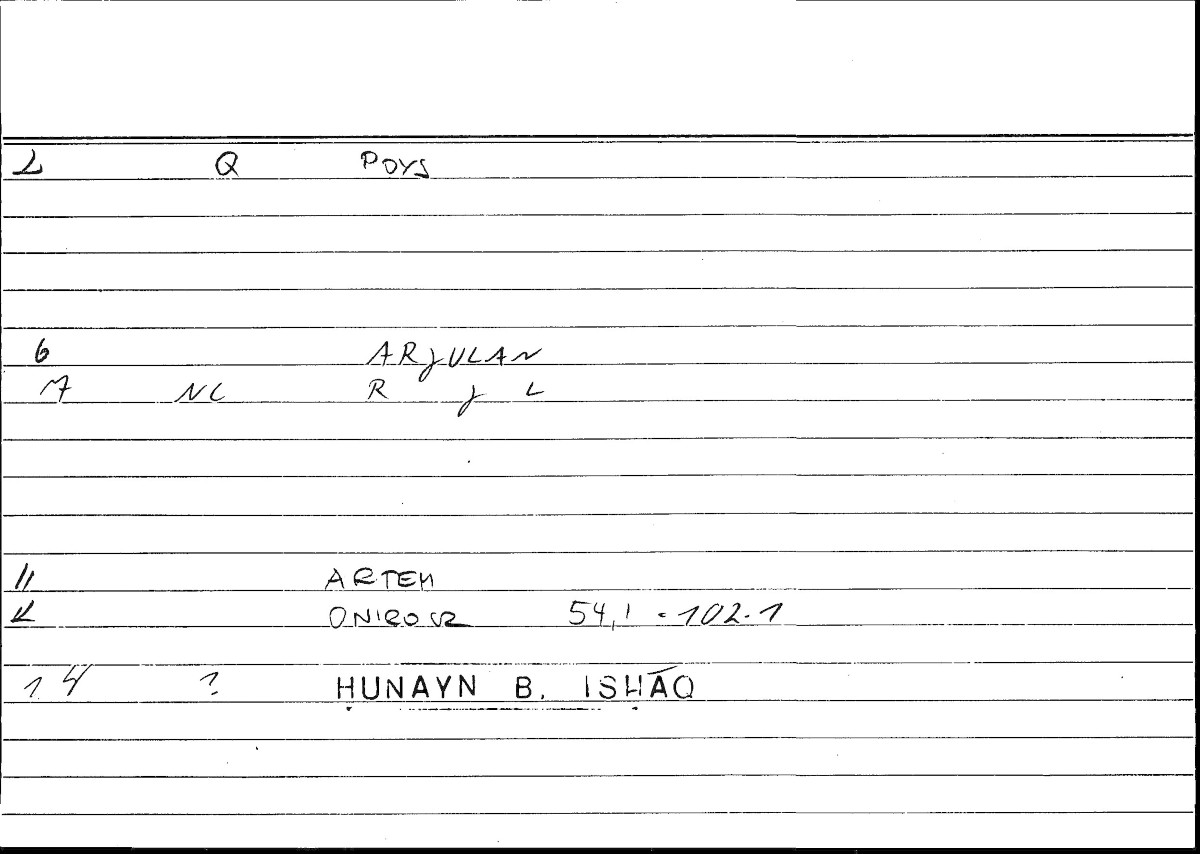 2 Q POYS
6 ARJULAN
7 NC R J L
11 ARTEM
12 ONIROCR 54,1 - 102.1
14 ? ḤUNAYN B. ISḤĀQ